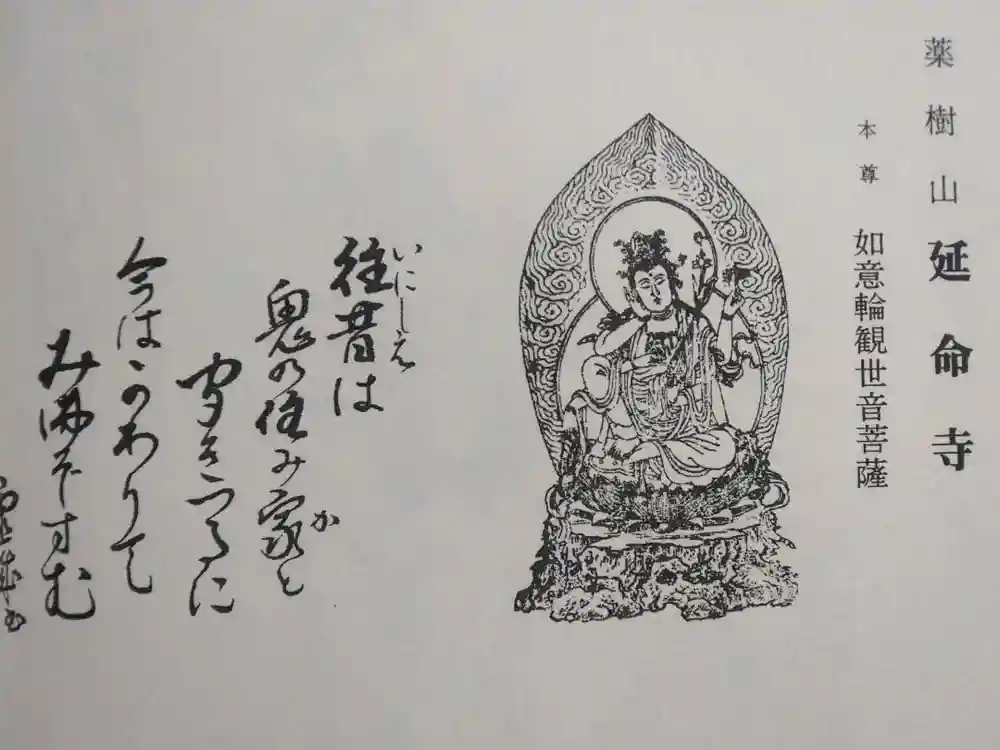 薬樹山延命寺
本尊 如意輪観世音菩薩
いにしえ
往昔は
鬼の住み家と
か
ききつるに
今はかわりて
み佛ぞすむ